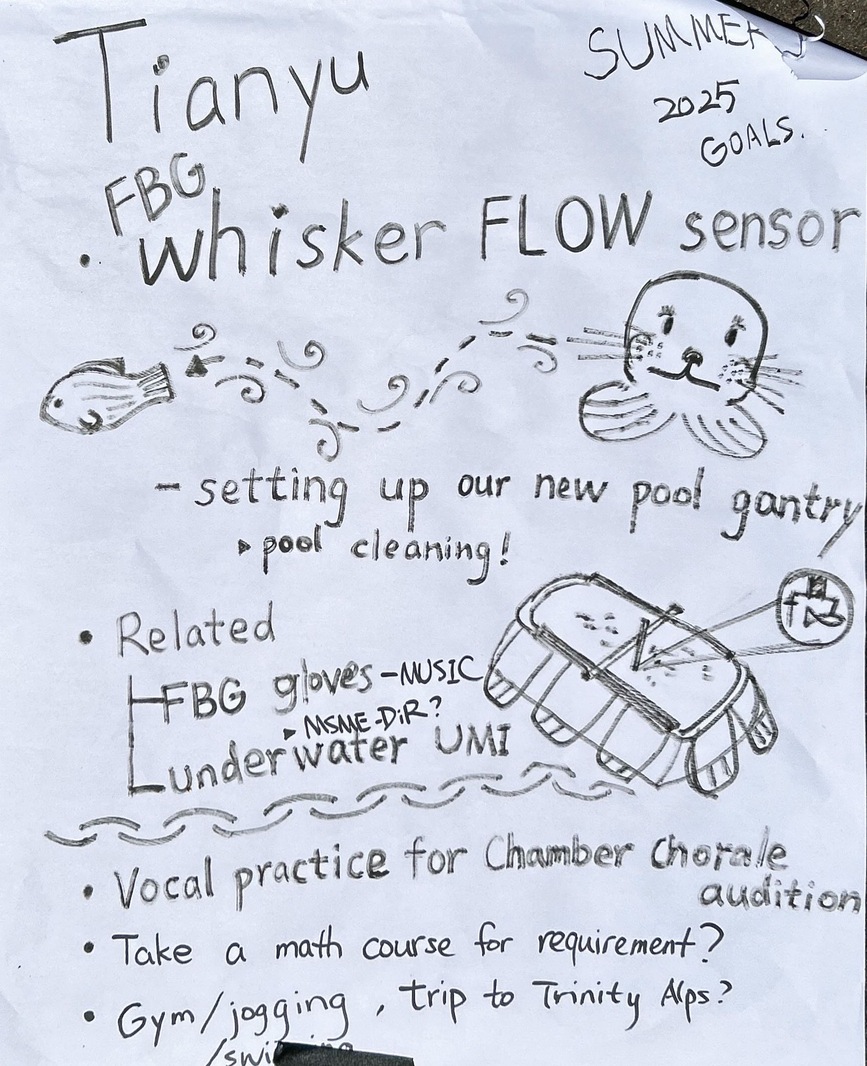 Tianyu
SUMMER
2025
GOALS.
FBG
• whisker FLOW sensor
- setting up our new pool gantry
▸ pool cleaning!
• Related
FBG gloves - MUSIC
▸ MSME-DiR?
underwater UMI
• Vocal practice for Chamber Chorale
audition
• Take a math course for requirement?
• Gym/jogging, trip to Trinity Alps?